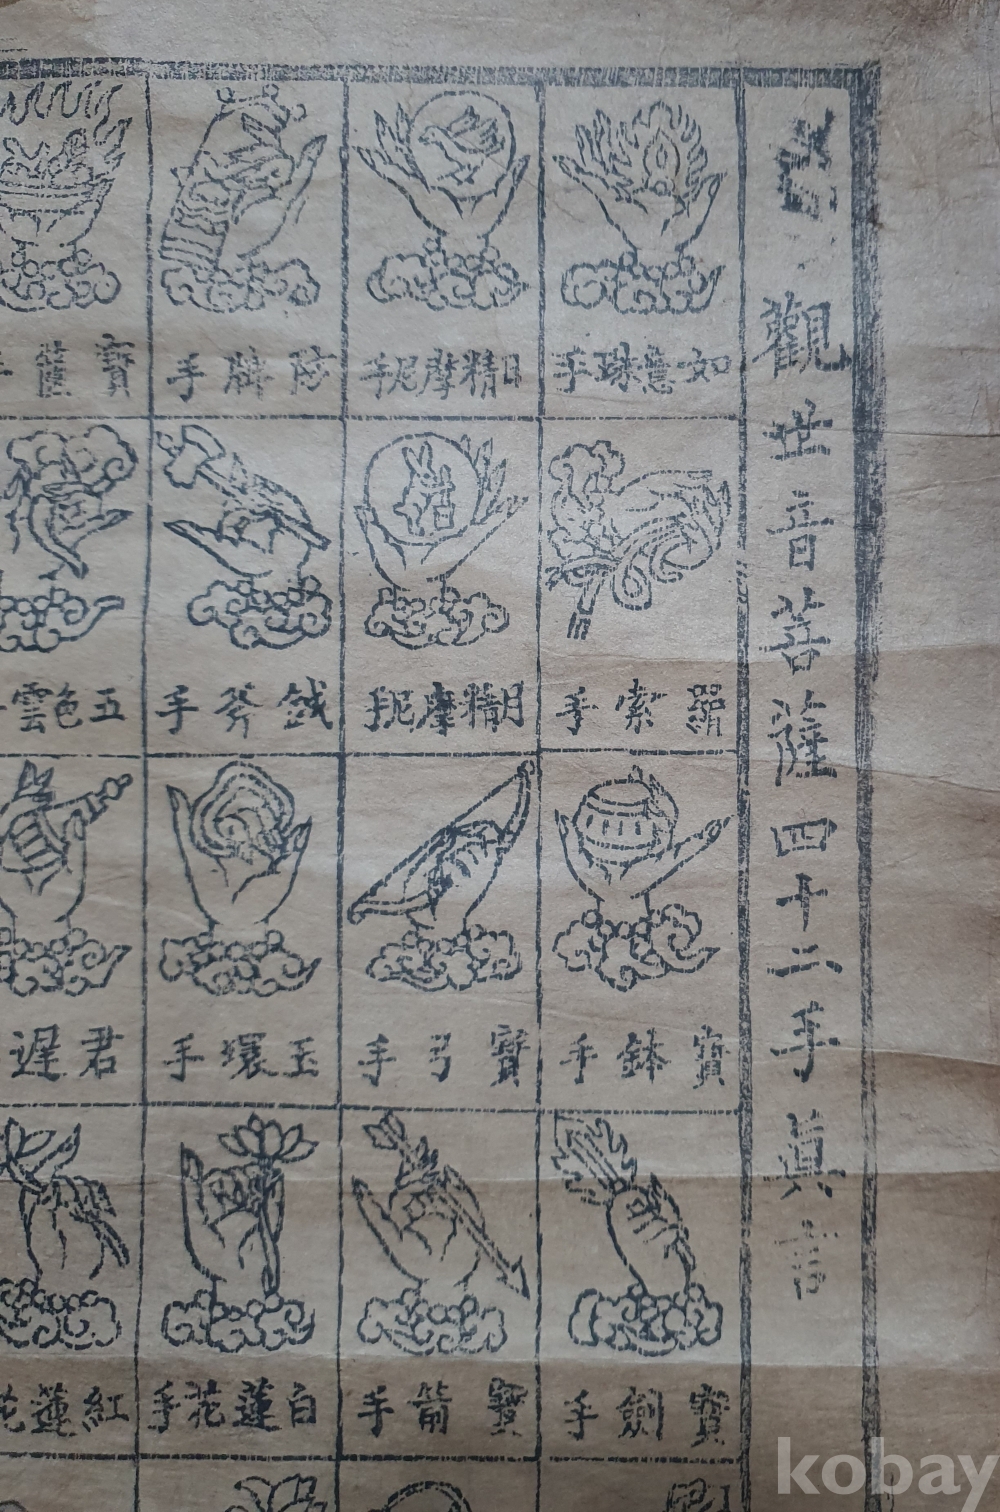 觀世音菩薩四十二手眞言
如意珠手
日精摩尼手
防牌手
寶
羂索手
月精摩尼手
鉞斧手
五色雲
寶鉢手
寶弓手
玉環手
君遲
寶劍手
寶箭手
白蓮花手
紅蓮花
kobay